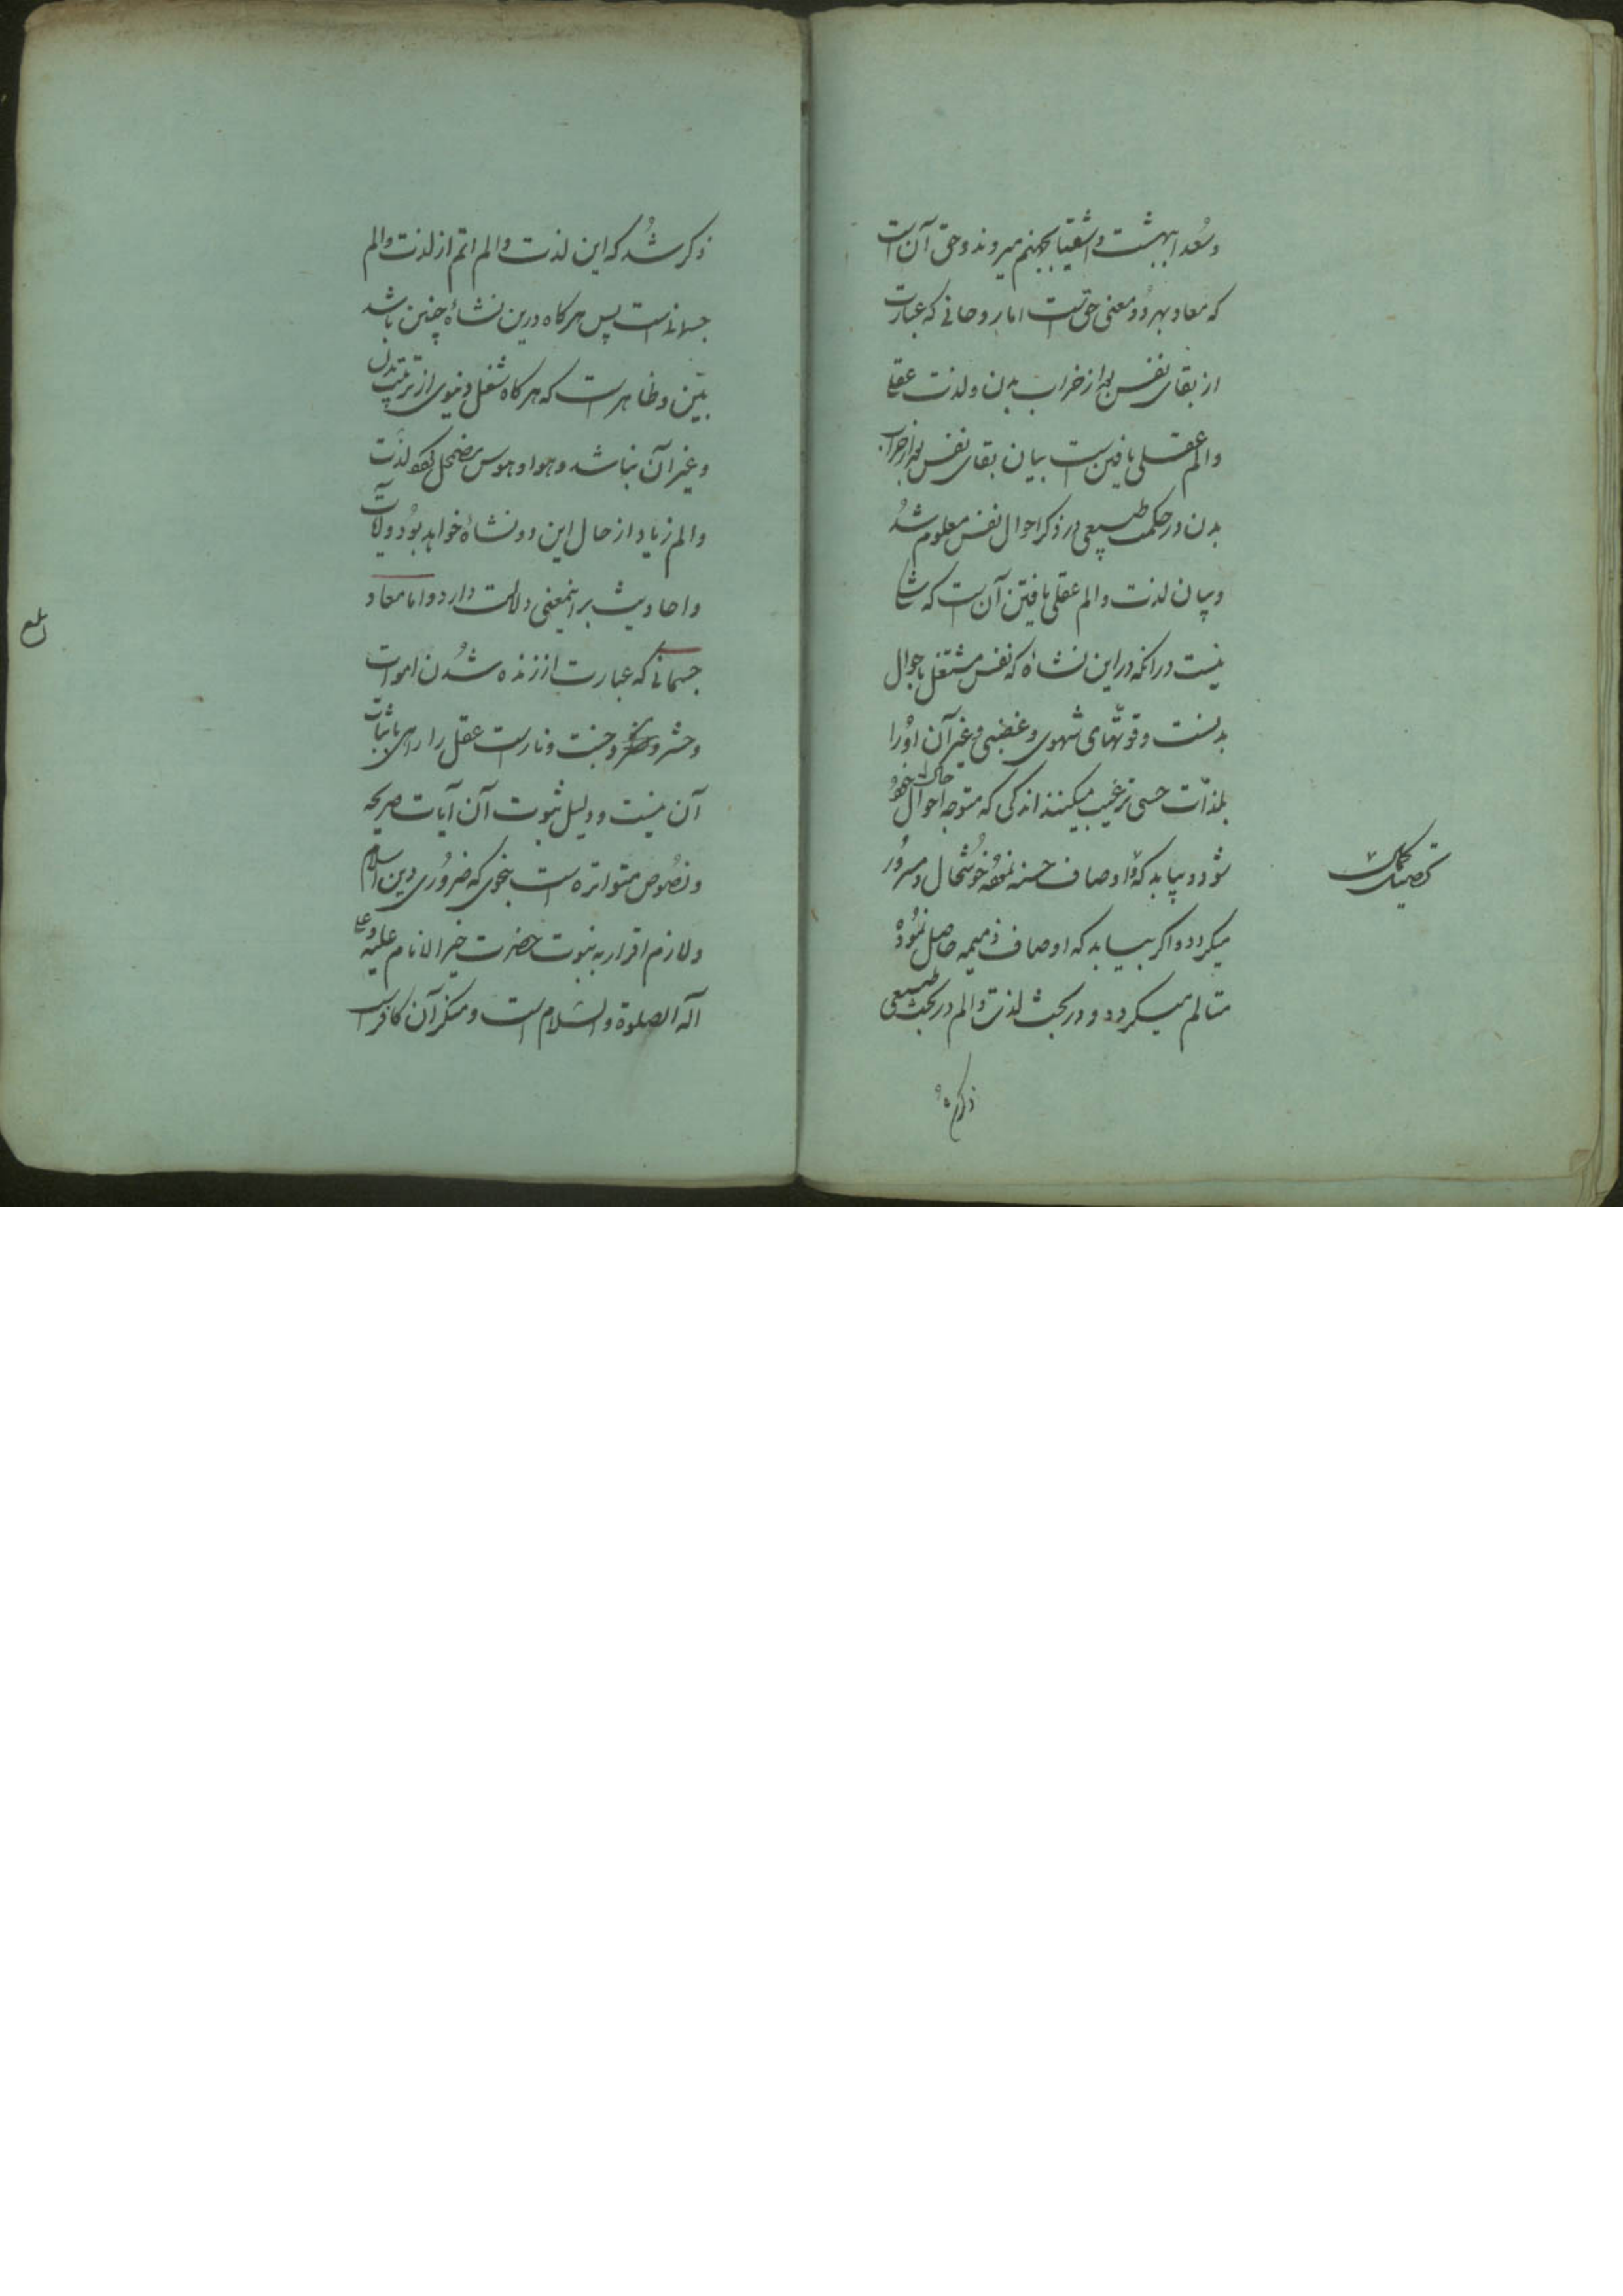 وسعدا ببهشت واشقیا بجهنم میروند وحق آن است
که معاد بهر دو معنی حق است اما روحانی که عبارت
از بقای نفس بعد از خراب بدن ولذت عقلی
والم عقلی یافتن است بیان بقای نفس بعد از خراب
بدن در حکمت طبیعی در ذکر احوال نفس معلوم شد
وبیان لذت والم عقلی یافتن آن است که شکی
نیست در آنکه در این نشاءه که نفس مشتغل باحوال
بدنست وقوتهای شهوی وغضبی وغیر آن او را
بلذات حسی ترغیب میکنند اندکی که متوجه احوال خود
شود وبیابد که اوصاف حسنه نموده خوشحال ومسرور
میکردد واکر بیابد که اوصاف ذمیمه حاصل نموده
متالم میکردد ودر بحث لذت والم در بحث طبیعی
ذکر شد
ذکر شد که این لذت والم اتم از لذت والم
جسمانی است پس هرکاه درین نشاءه چنین باشد
بیّن وظاهر است که هرکاه شغل دنیوی از ترتیب بدن
وغیر آن نباشد وهوا وهوس مضمحل کردد لذت
والم زیاد از حال این دو نشاءه خواهد بود وآیات
واحادیث بر اینمعنی دلالت دارد واما معاد
جسمانی که عبارت از زنده شدن اموات
وحشر ونشر وجنت ونار است عقل را راهی باثبات
آن نیست ودلیل ثبوت آن آیات صریحه
ونصوص متواتره است بنحوی که ضروری دین اسلام
ولازم اقرار به نبوت حضرت خیر الانام علیه وعلی
آله الصلوة والسلام است ومنکر آن کافر است